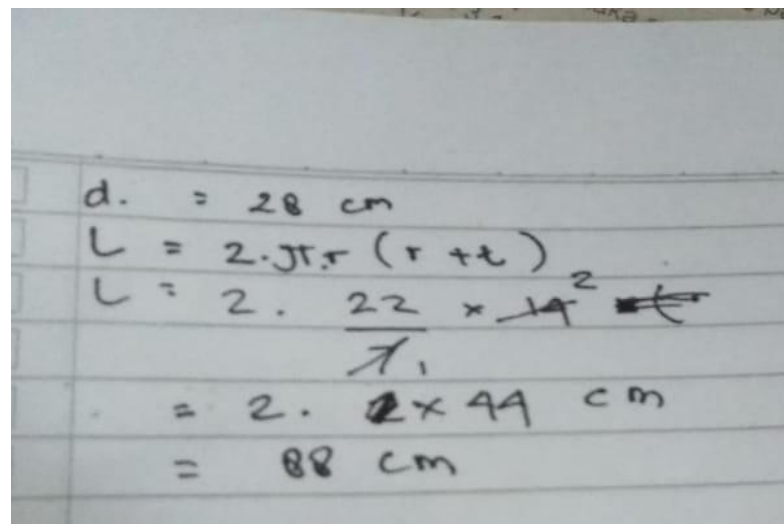 d. = 28 cm
L = 2.π.r (r + t)
L = 2. 22/7 1 × 14 2
= 2. 2 × 44 cm
= 88 cm